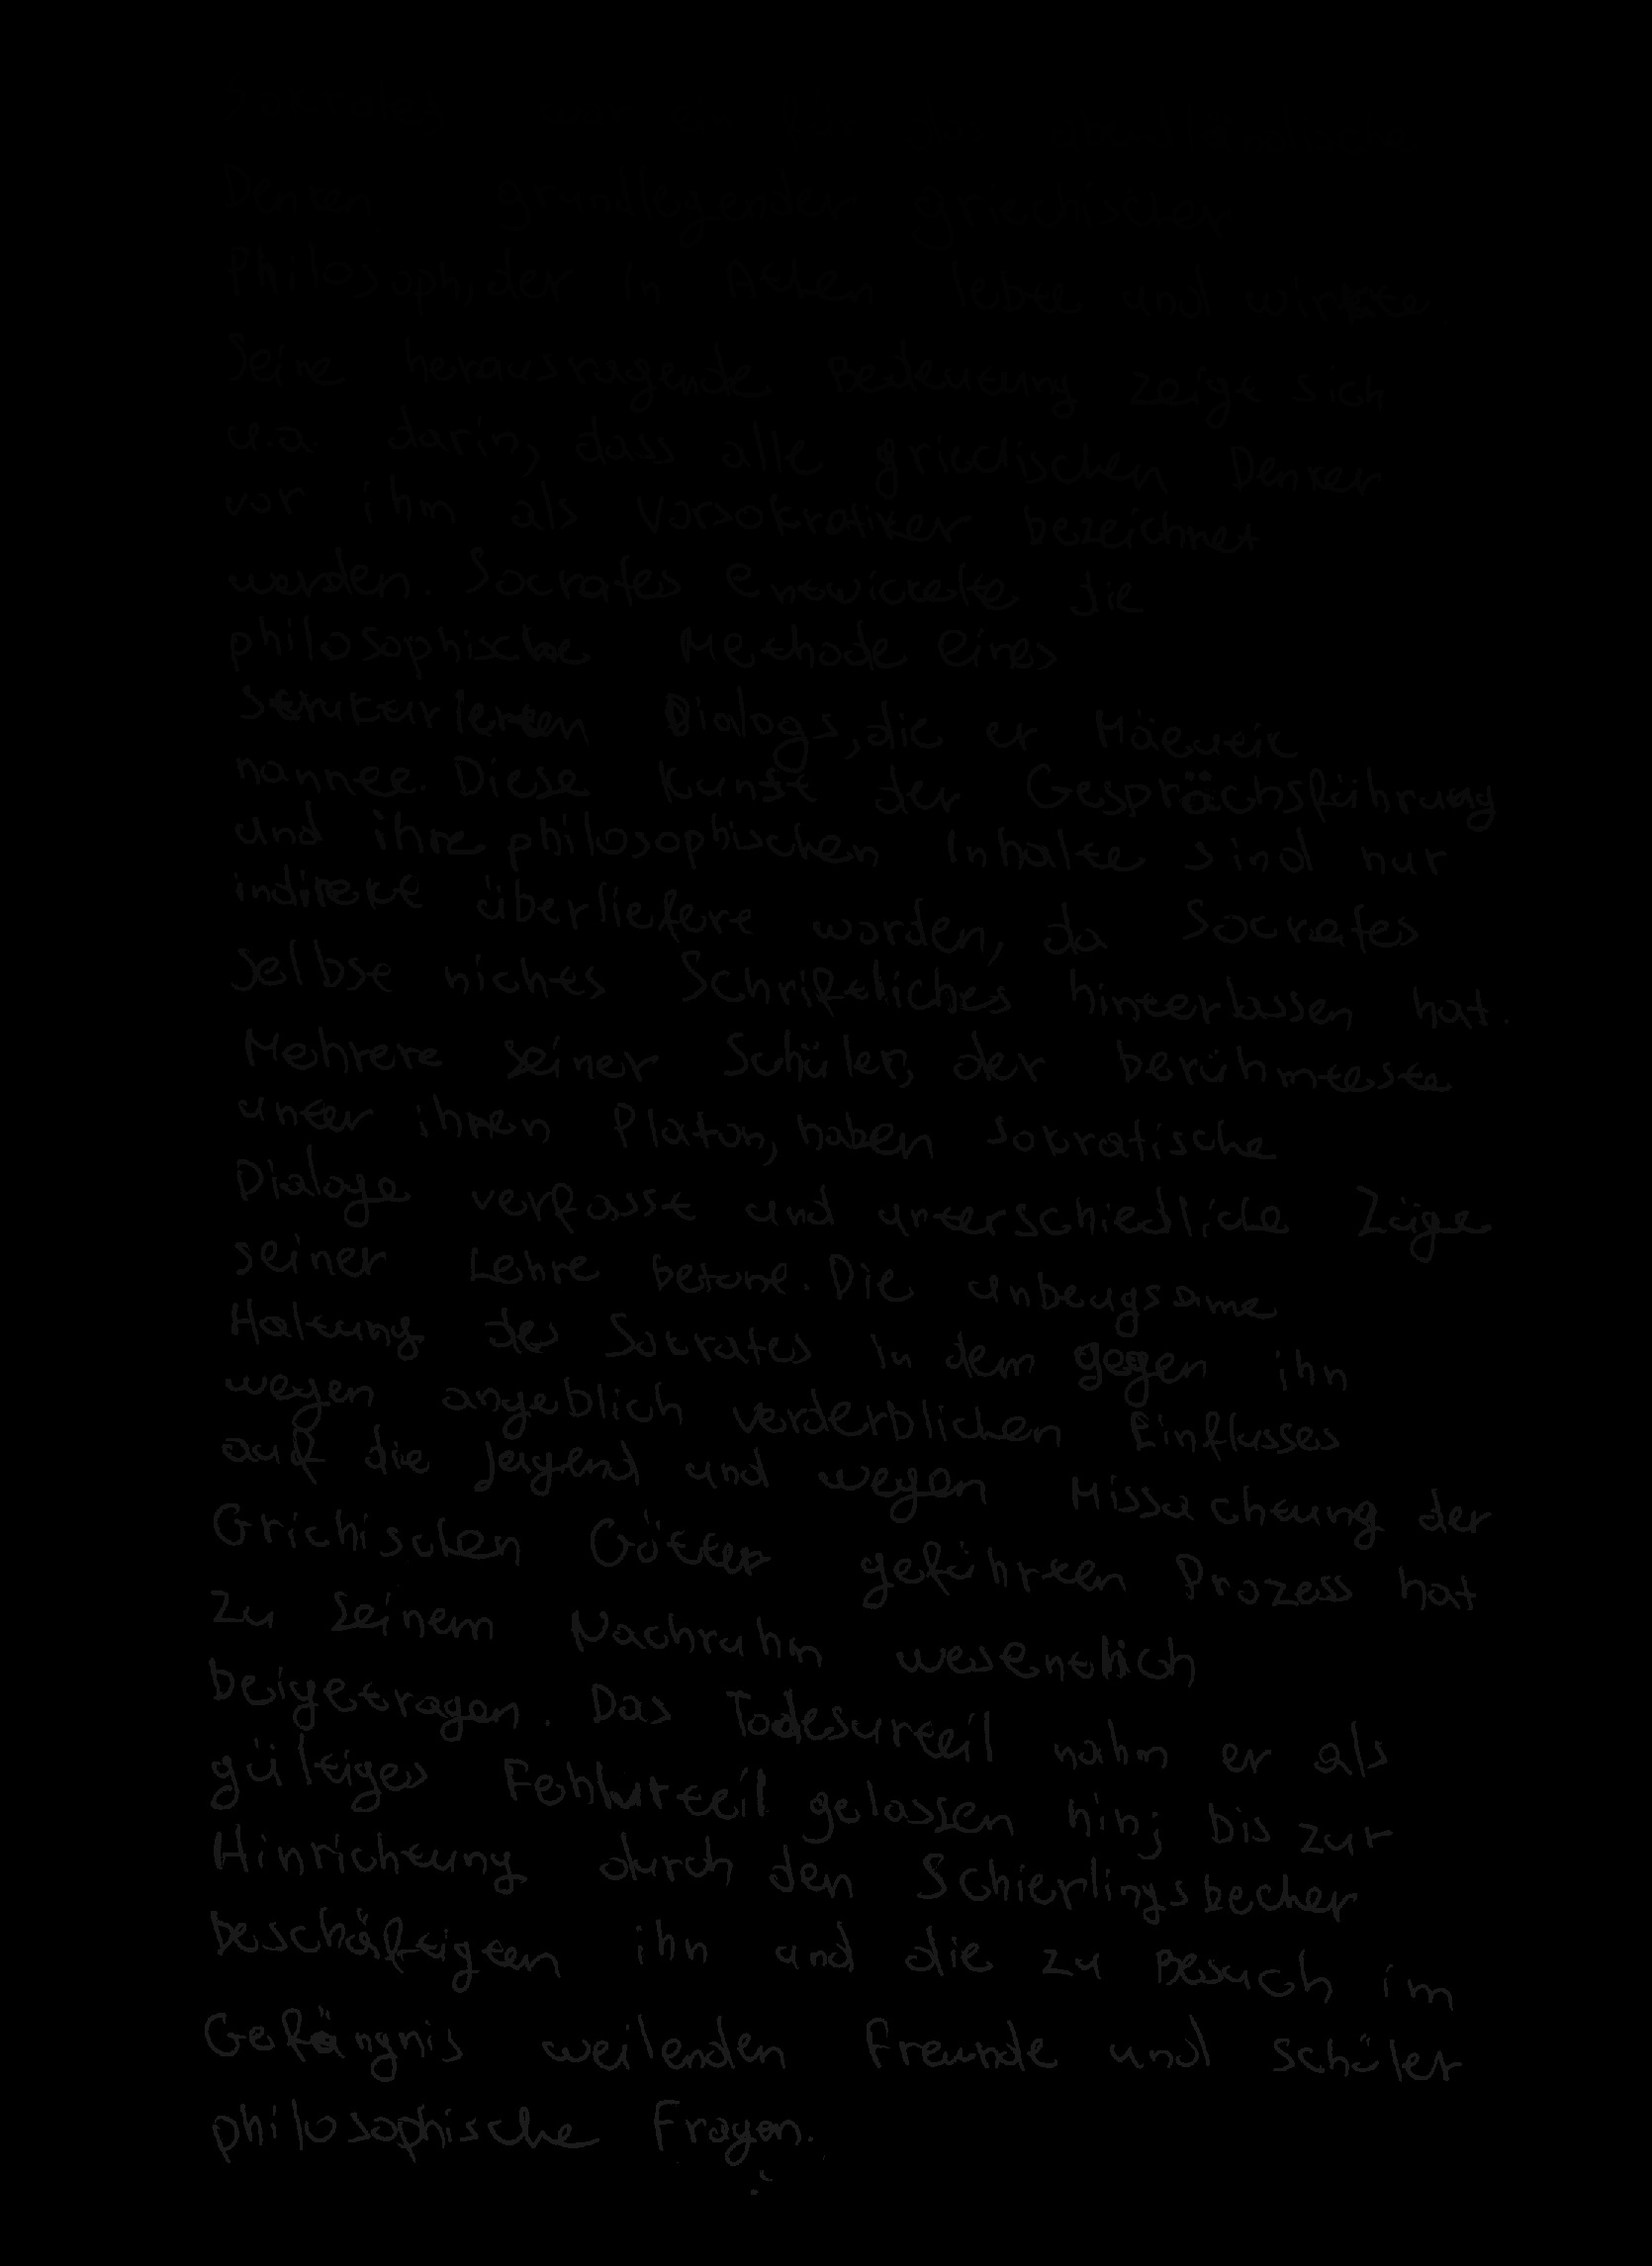 Denken grundlegender griechischer
Philosoph, der in Athen lebte und wirkte.
Seine herausragende Bedeutung zeigt sich
u.a. darin, dass alle griechischen Denker
vor ihm als Vorsokratiker bezeichnet
werden. Socrates entwickelte die
philosophische Methode eines
strukturierten Dialogs, die er Mäeutik
nannte. Diese Kunst der Gesprächsführung
und ihre philosophischen Inhalte sind nur
indirekt überliefert worden, da Socrates
selbst nichts Schriftliches hinterlassen hat.
Mehrere seiner Schüler, der berühmteste
unter ihnen Platon, haben sokratische
Dialoge verfasst und unterschiedliche Züge
seiner Lehre betont. Die unbeugsame
Haltung des Sokrates in dem gegen ihn
wegen angeblich verderblichen Einflusses
auf die Jugend und wegen Missachtung der
Grichischen Götter geführten Prozess hat
zu seinem Nachruhm wesentlich
beigetragen. Das Todesurteil nahm er als
gültiges Fehlurteil gelassen hin; bis zur
Hinrichtung durch den Schierlingsbecher
beschäftigten ihn und die zu Besuch im
Gefängnis weilenden Freunde und schüler
philosophische Fragen.